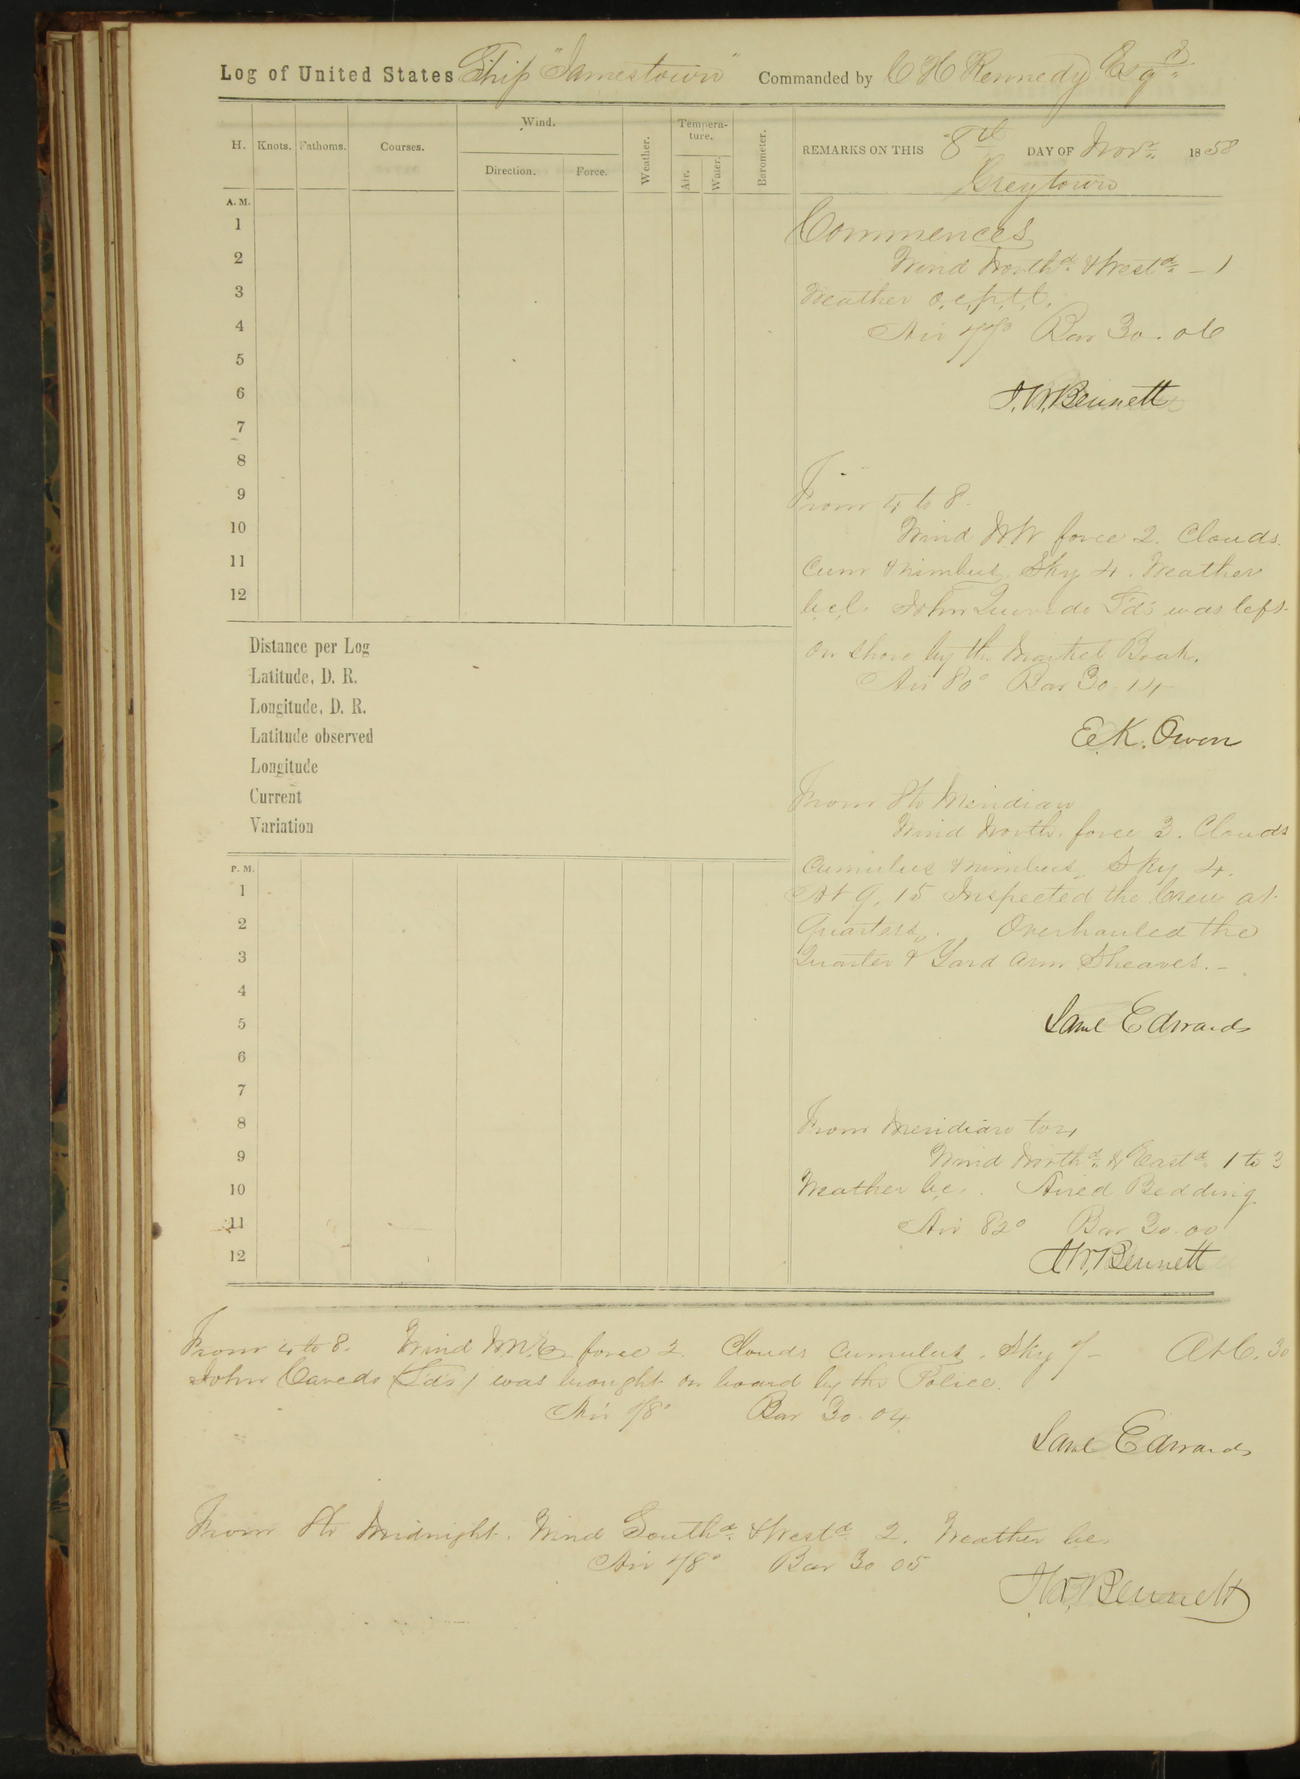 Log of United States Ship "Jamestown" Commanded by C H Kennedy Esqr
H. Knots. Fathoms. Courses. Wind. Direction. Force. Weather. Tempera-ture. Air. Water. Barometer.
REMARKS ON THIS 8th DAY OF Novr 1858
Greytown
A. M.
1
2
3
4
5
6
7
8
9
10
11
12
Commences
Wind Northd & Westd - 1
Weather o.c.p.t.l.
Air 77° Bar 30.06
J.W. Bennett
From 4 to 8.
Wind NW force 2. Clouds.
Cum & nimbus. Sky 4. Weather
b.c.l. John Quevedo Lds was left
on shore by the Market Boat.
Air 80° Bar 30.14
E.K. Owen
From 8 to Meridian
Wind North. force 3. Clouds
Cumulus & nimbus, Sky 4.
At 9.15 Inspected the Crew at
Quarters. Overhauled the
Quarter & Yard arm Sheaves. -
Saml Edwards
From Meridian to 4
Wind Northd & Eastd 1 to 3
Weather b.c. Aired Bedding
Air 82° Bar 30.00
J.W. Bennett
Distance per Log
Latitude, D. R.
Longitude, D. R.
Latitude observed
Longitude
Current
Variation
P. M.
1
2
3
4
5
6
7
8
9
10
11
12
From 4 to 8. Wind NN.E force 2 Clouds Cumulus. Sky 7 - At 6.30
John (Lds) was brought on board by the Police.
Air 78° Bar 30.04
Saml Edwards
From 8 to Midnight. Wind Southd & Westd 2. Weather bc.
Air 78° Bar 30 05
J.W. Bennett